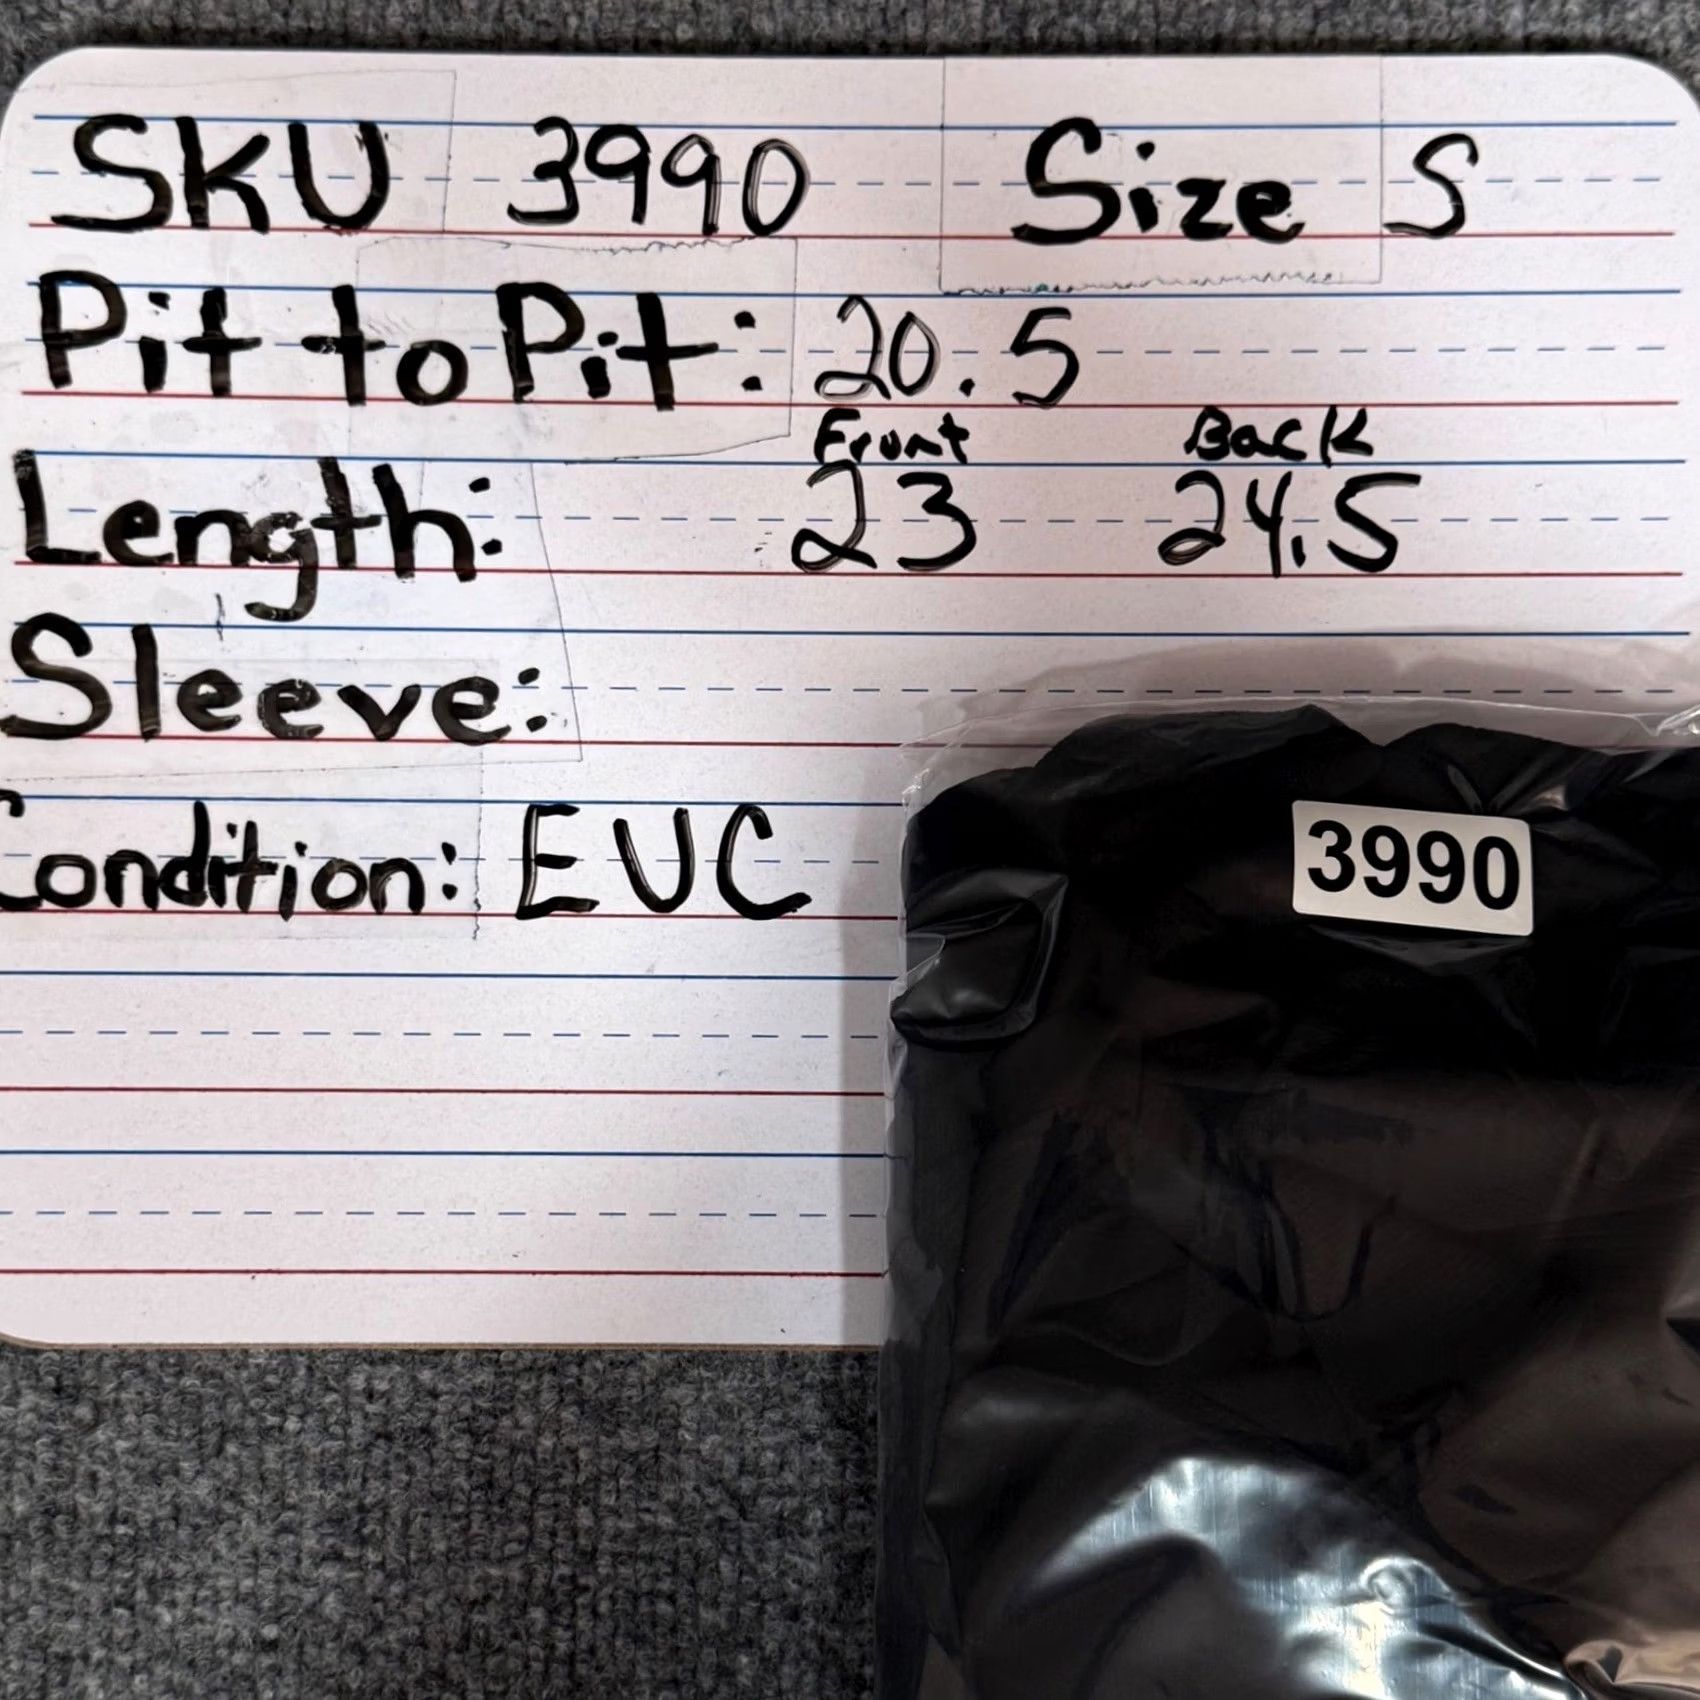 SKU 3990 Size S
Pit to Pit: 20.5
Front Back
Length: 23 24.5
Sleeve:
Condition: EUC
3990